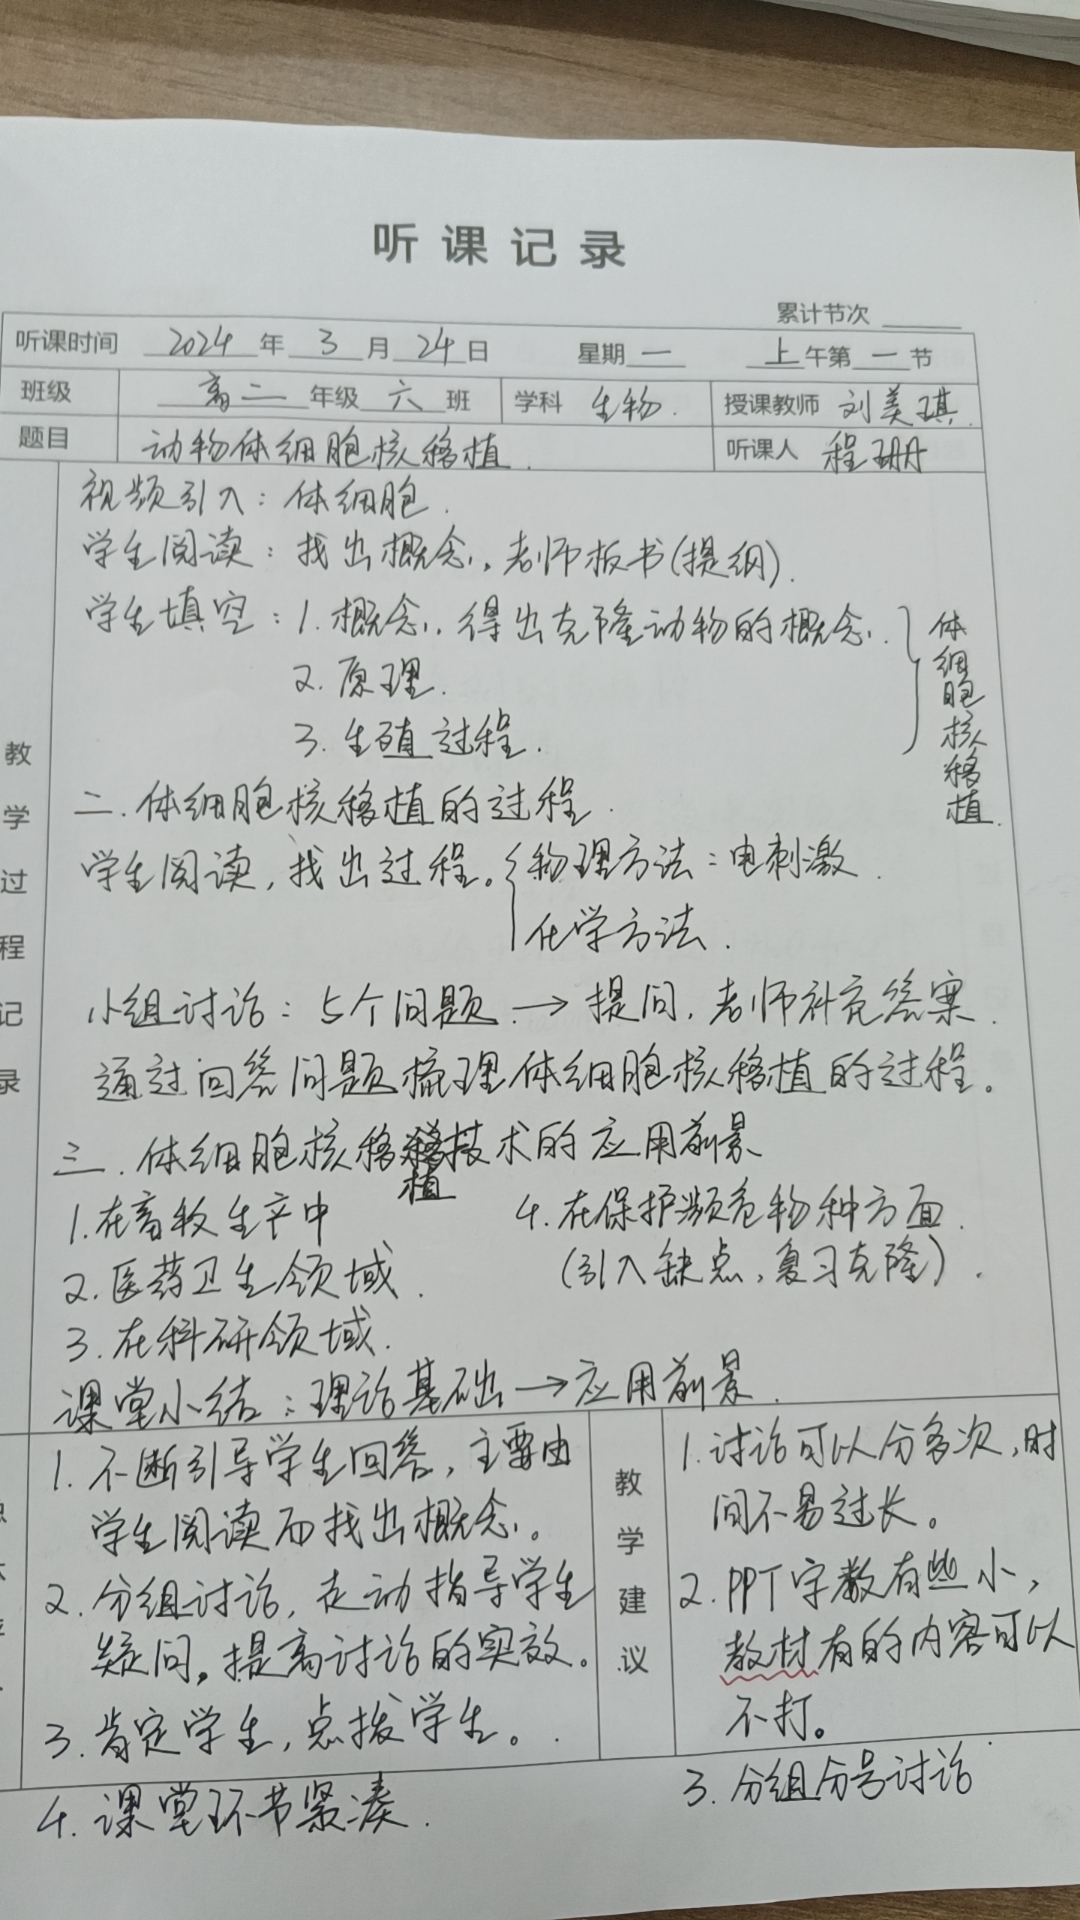 听课记录
累计节次
听课时间 2024 年 3 月 24 日 星期 一 上 午第 一 节
班级 高二 年级 六 班 学科 生物. 授课教师 刘美琪.
题目 动物体细胞核移植. 听课人 程珊
教学过程记录
视频引入: 体细胞.
学生阅读: 找出概念, 老师板书(提纲).
学生填空: 1. 概念, 得出克隆动物的概念.
2. 原理.
3. 生殖过程.
体细胞核移植.
二. 体细胞核移植的过程.
学生阅读, 找出过程。物理方法: 电刺激.
化学方法.
小组讨论: 5个问题. → 提问, 老师补充答案.
通过回答问题梳理体细胞核移植的过程。
三. 体细胞核移植技术的应用前景
1. 在畜牧生产中
2. 医药卫生领域.
3. 在科研领域.
4. 在保护濒危物种方面.
(引入缺点, 复习克隆).
课堂小结: 理论基础 → 应用前景.
1. 不断引导学生回答, 主要由
学生阅读而找出概念。
2. 分组讨论, 走动指导学生
疑问, 提高讨论的实效。
3. 肯定学生, 点拨学生。
4. 课堂环节紧凑.
教学建议
1. 讨论可以分多次, 时
间不易过长。
2. PPT字数有些小,
教材有的内容可以
不打。
3. 分组分号讨论